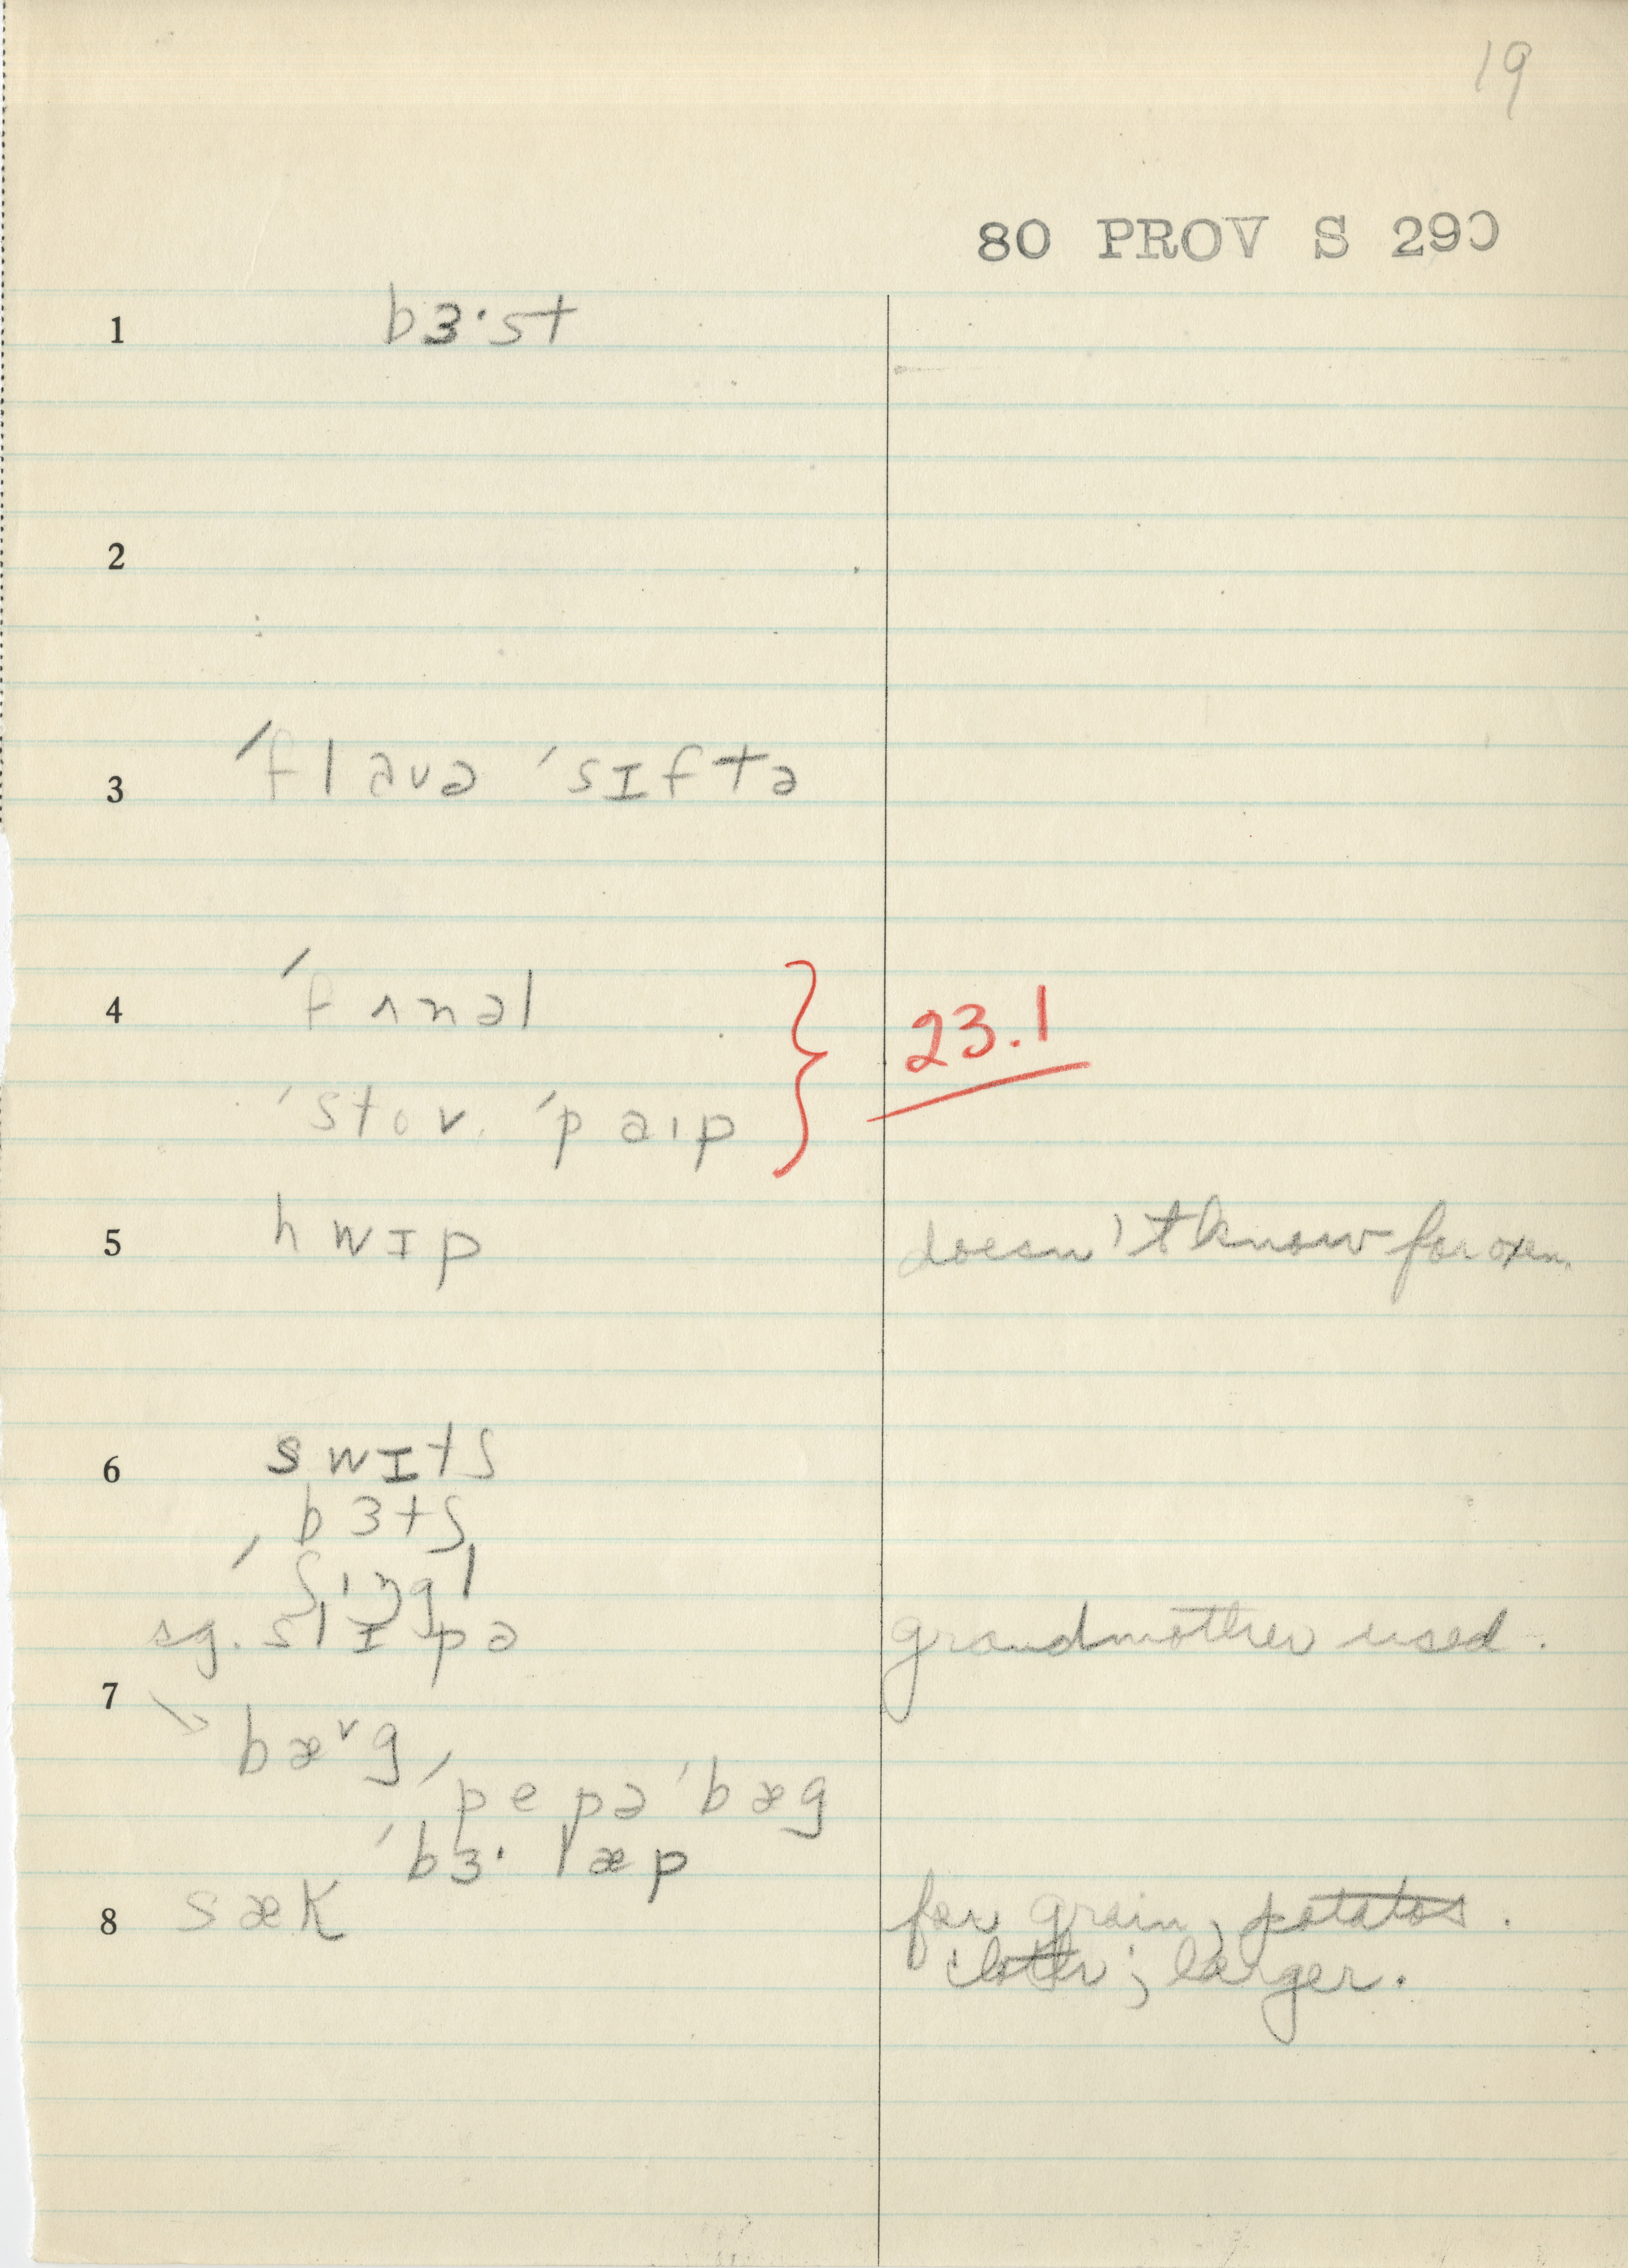 19
80 PROV S 290
1 bɜ·st
2
3 ˈflaʊə ˈsɪftə
4 ˈfʌnəl } 23.1
ˈstov ˈpaɪp
5 hwɪp doesn't know for oxen.
6 swɪtʃ
bɜtʃ
ˈʃɪŋgl
sg. slɪpə grandmother used.
7
→ bæ˅g
ˈpepə ˈbæg
ˈbɜ· læp
8 sæk for grain, potatos.
cloth; larger.